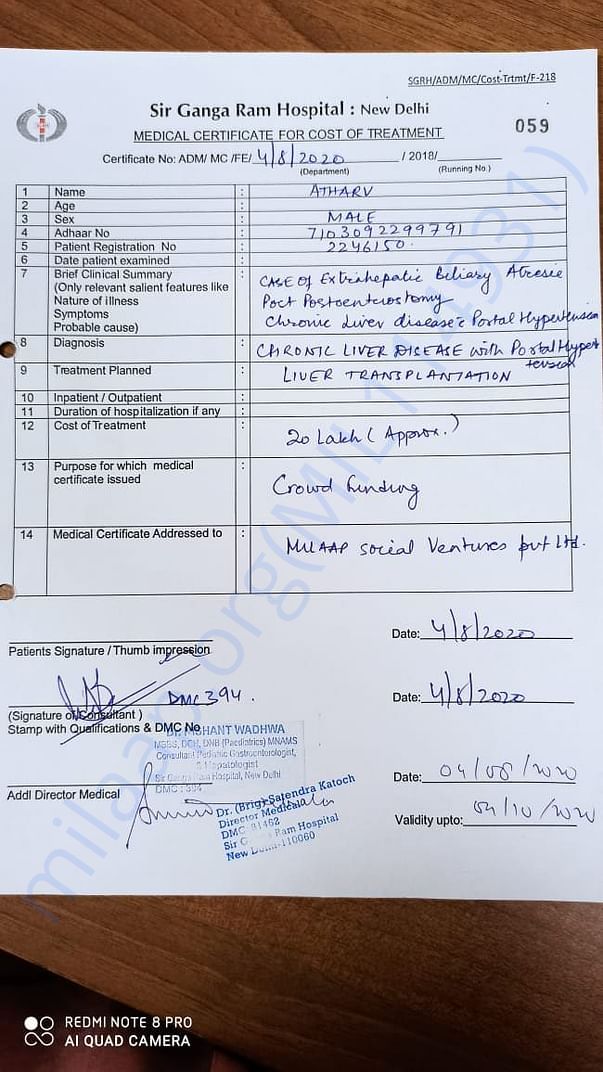 SGRH/ADM/MC/Cost-Trtmt/F-218
Sir Ganga Ram Hospital : New Delhi
MEDICAL CERTIFICATE FOR COST OF TREATMENT
059
Certificate No: ADM/ MC /FE/ 4/8/2020 / 2018/
(Department) (Running No.)
1 Name : ATHARV
2 Age :
3 Sex : MALE
4 Adhaar No : 7103092299791
5 Patient Registration No : 2246150.
6 Date patient examined :
7 Brief Clinical Summary : CASE OF Extrahepatic Biliary Atresie
(Only relevant salient features like
Nature of illness Post Postoenterostomy
Symptoms
Probable cause) Chronic Liver disease c Portal Hypertension
8 Diagnosis : CHRONIC LIVER DISEASE with Portal Hyper
tension
9 Treatment Planned : LIVER TRANSPLANTATION
10 Inpatient / Outpatient :
11 Duration of hospitalization if any :
12 Cost of Treatment : 20 Lakh (Approx.)
13 Purpose for which medical : Crowd funding
certificate issued
14 Medical Certificate Addressed to : MILAAP Social Ventures pvt Ltd.
Date: 4/8/2020
Patients Signature / Thumb impression
DMC 394.
Date: 4/8/2020
(Signature of Consultant )
Stamp with Qualifications & DMC No
NISHANT WADHWA
MBBS, DCH, DNB (Paediatrics) MNAMS
Consultant Pediatric Gastroenterologist,
& Hepatologist
Sir Ganga Ram Hospital, New Delhi
DMC : 394
Date: 04/08/2020
Addl Director Medical
Dr. (Brig) Satendra Katoch
Director Medical
DMC 81462
Sir Ram Hospital
New Delhi-110060
Validity upto: 04/10/2020
milaap.org(MIL114931)
REDMI NOTE 8 PRO
AI QUAD CAMERA